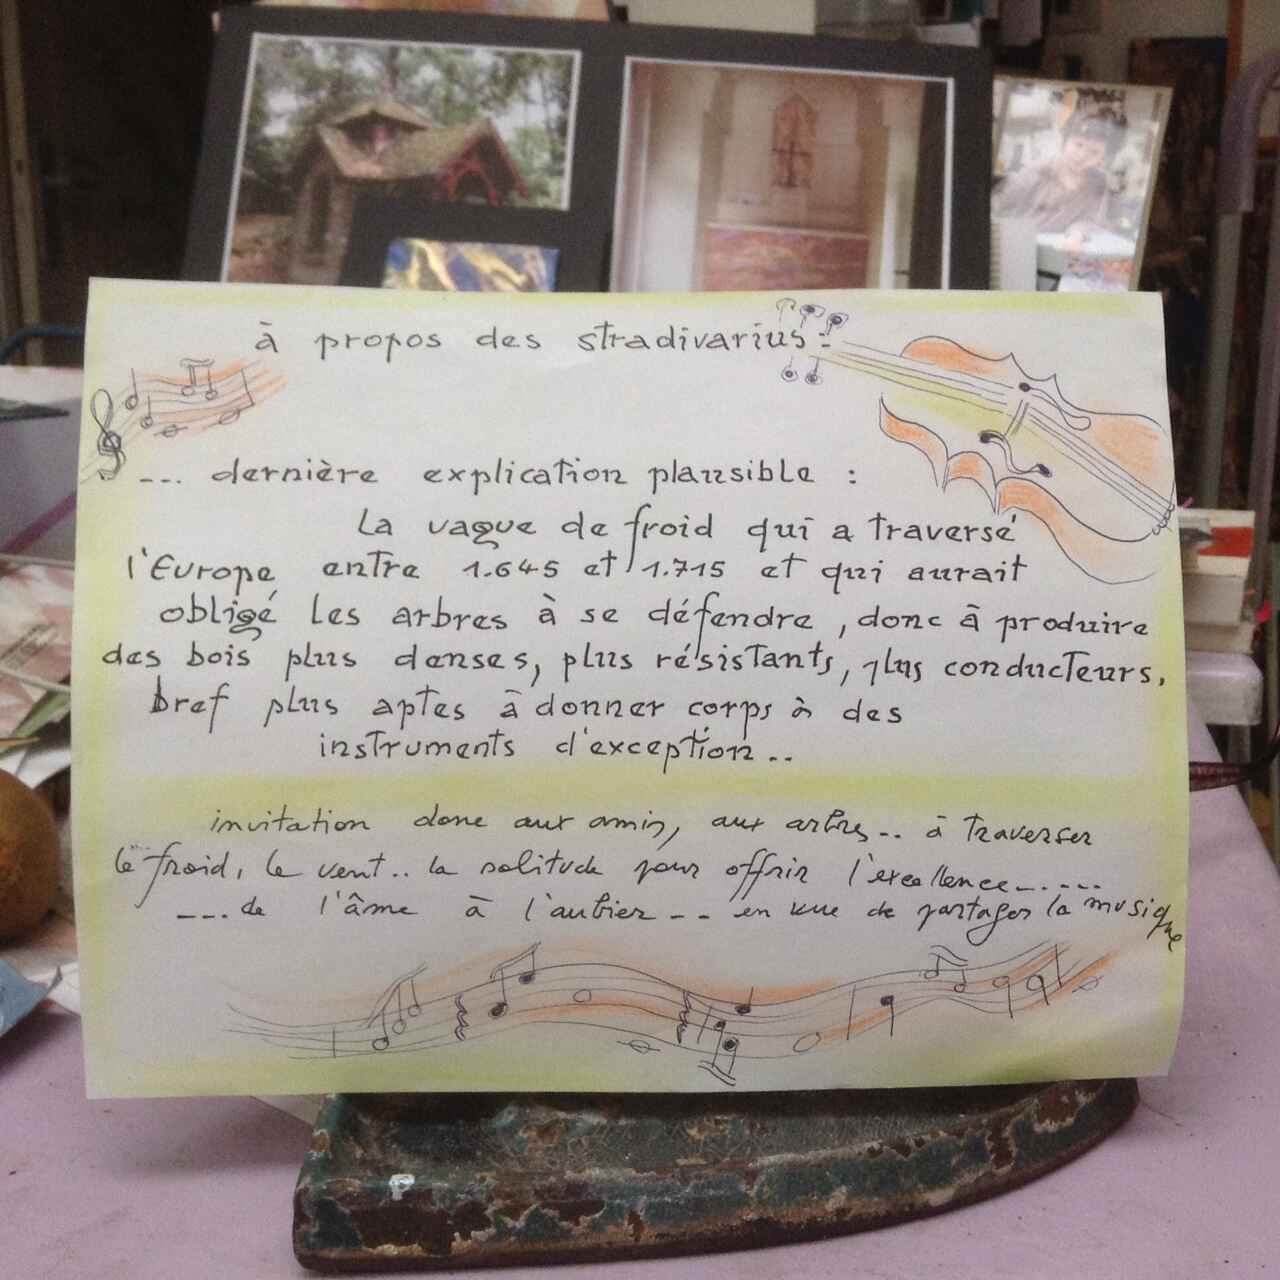 à propos des stradivarius :
... dernière explication plausible :
La vague de froid qui a traversé
l'Europe entre 1.645 et 1.715 et qui aurait
obligé les arbres à se défendre, donc à produire
des bois plus denses, plus résistants, plus conducteurs,
bref plus aptes à donner corps à des
instruments d'exception..
invitation donc aux amis, aux arbres.. à traverser
le froid, le vent.. la solitude pour offrir l'excellence......
---.de l'âme à l'aubier -- en vue de partager la musique